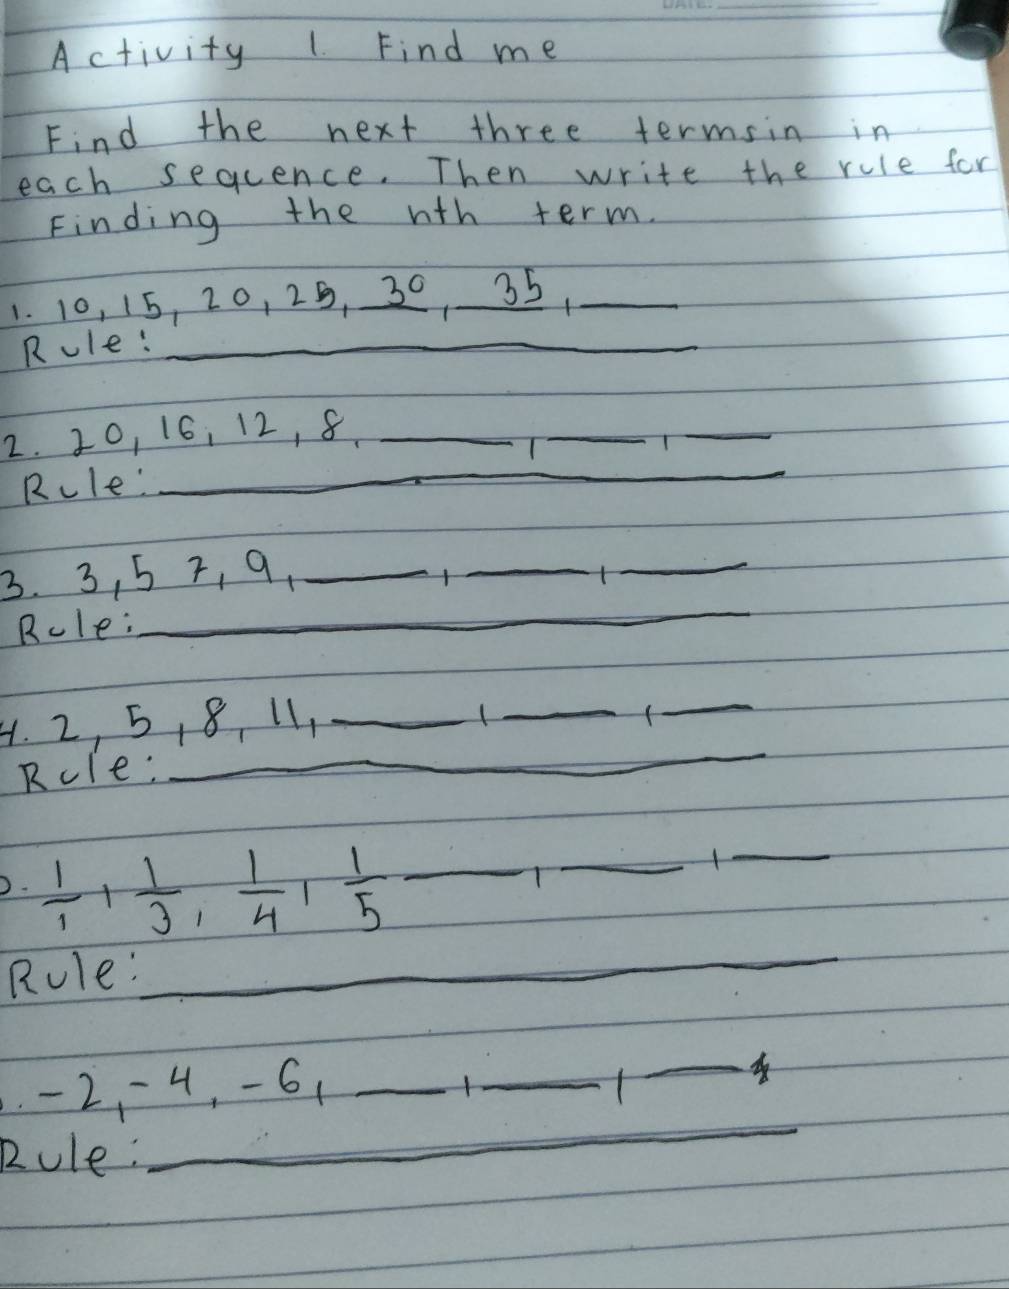 DATE:
Activity 1. Find me
Find the next three termsin in
each seqcence. Then write the rule for
Finding the nth term.
1. 10, 15, 20, 25, 30, 35, ____
Rule: ____
2. 20, 16, 12, 8, ____, ____, ____
Rule: ____
3. 3, 5 7, 9, ____, ____, ____
Rule: ____
4. 2, 5, 8, 11, ____, ____, ____
Rule: ____
1/1, 1/3, 1/4, 1/5 ____, ____, ____
Rule: ____
. -2, -4, -6, ____, ____, ____
Rule: ____